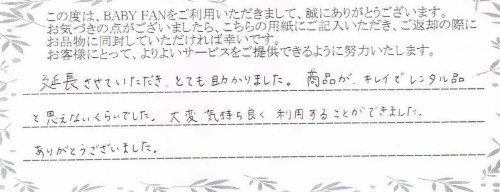 この度は、BABY FANをご利用いただきまして、誠にありがとうございます。
お気づきの点がございましたら、こちらの用紙にご記入いただき、ご返却の際に
お品物に同封していただければ幸いです。
お客様にとって、よりよいサービスをご提供できるように努力いたします。
延長させていただき、とても助かりました。商品が、キレイでレンタル品
と思えないくらいでした。大変気持ち良く利用することができました。
ありがとうございました。